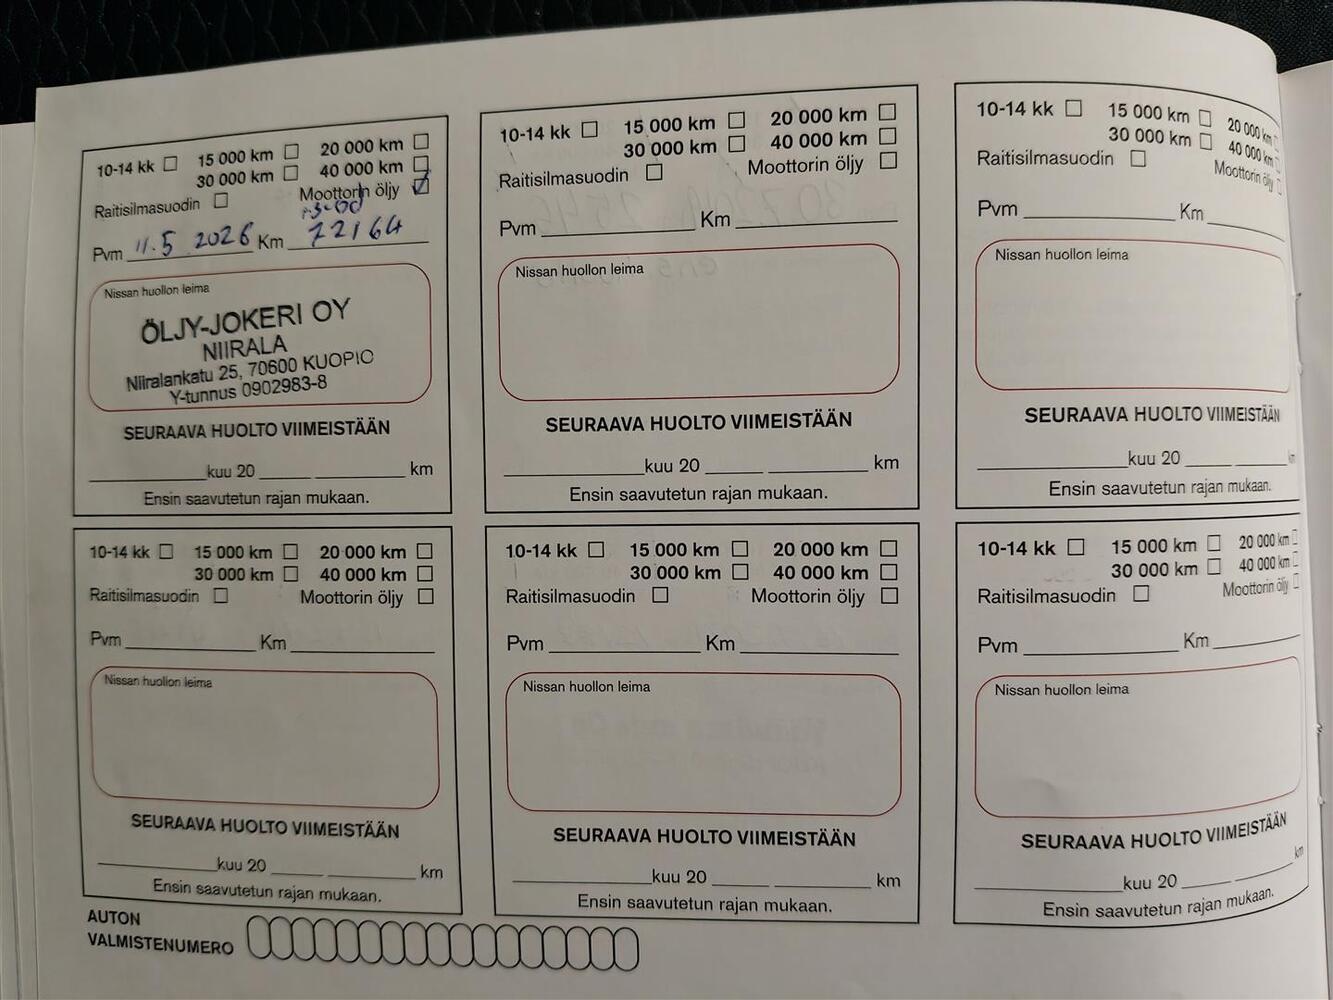 10-14 kk 15 000 km 20 000 km
30 000 km 40 000 km
Raitisilmasuodin Moottorin öljy
Pvm 11.5 2026 Km 72164
Nissan huollon leima
ÖLJY-JOKERI OY
NIIRALA
Niiralankatu 25, 70600 KUOPIO
Y-tunnus 0902983-8
SEURAAVA HUOLTO VIIMEISTÄÄN
kuu 20 km
Ensin saavutetun rajan mukaan.
10-14 kk 15 000 km 20 000 km
30 000 km 40 000 km
Raitisilmasuodin Moottorin öljy
Pvm Km
Nissan huollon leima
SEURAAVA HUOLTO VIIMEISTÄÄN
kuu 20 km
Ensin saavutetun rajan mukaan.
10-14 kk 15 000 km 20 000 km
30 000 km 40 000 km
Raitisilmasuodin Moottorin öljy
Pvm Km
Nissan huollon leima
SEURAAVA HUOLTO VIIMEISTÄÄN
kuu 20 km
Ensin saavutetun rajan mukaan.
10-14 kk 15 000 km 20 000 km
30 000 km 40 000 km
Raitisilmasuodin Moottorin öljy
Pvm Km
Nissan huollon leima
SEURAAVA HUOLTO VIIMEISTÄÄN
kuu 20 km
Ensin saavutetun rajan mukaan.
10-14 kk 15 000 km 20 000 km
30 000 km 40 000 km
Raitisilmasuodin Moottorin öljy
Pvm Km
Nissan huollon leima
SEURAAVA HUOLTO VIIMEISTÄÄN
kuu 20 km
Ensin saavutetun rajan mukaan.
10-14 kk 15 000 km 20 000 km
30 000 km 40 000 km
Raitisilmasuodin Moottorin öljy
Pvm Km
Nissan huollon leima
SEURAAVA HUOLTO VIIMEISTÄÄN
kuu 20 km
Ensin saavutetun rajan mukaan.
AUTON
VALMISTENUMERO